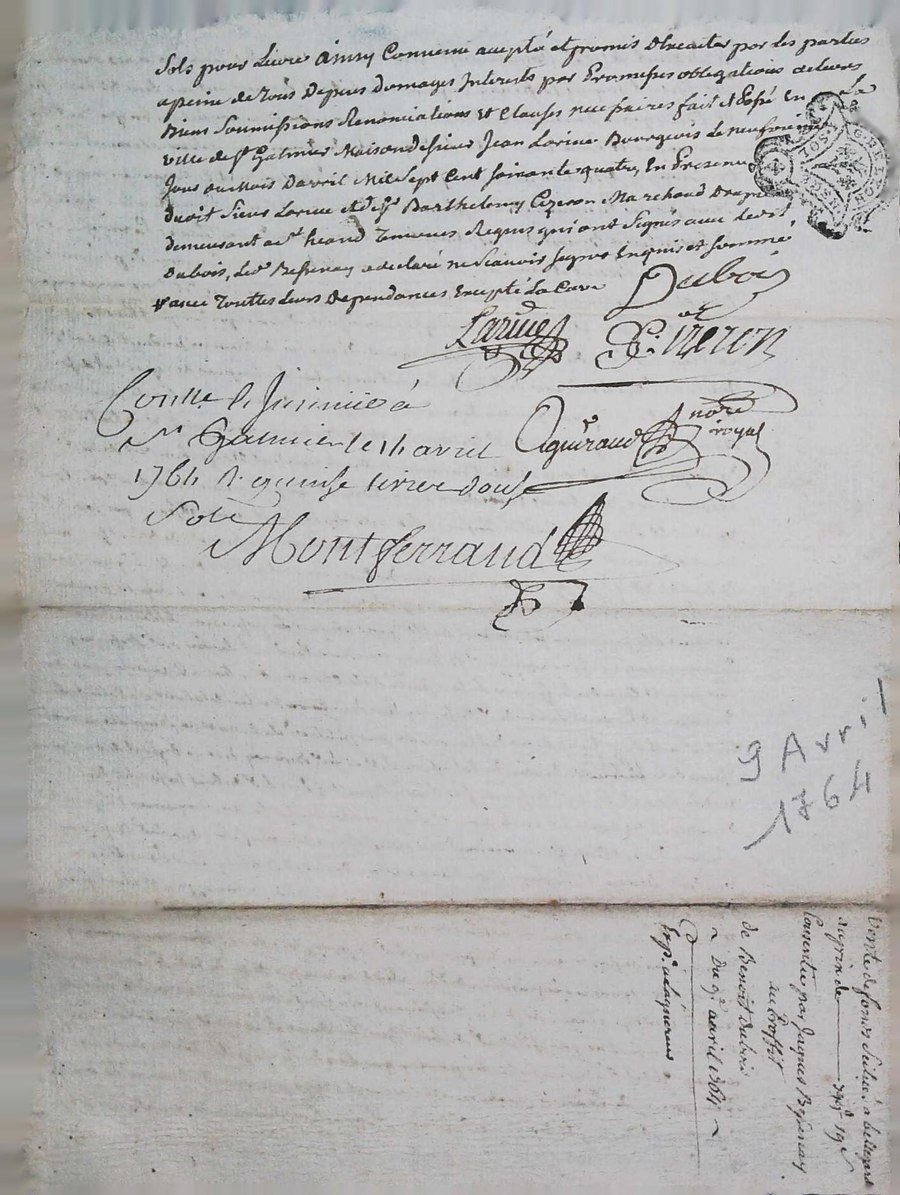 Sols pour Livre Ainsy Convenu accepté et promis Executer par les parties
a peine de Tous Depens Domages Interests par Promesses obligations de leurs
Biens Soumissions Renonciations et Clauses necessaires fait et Passé En la
ville de St Galmier Maison de Sieur Jean Larive Bourgeois Le neufvieme
Jour du Mois D'avril Mil Sept Cent soixante quatre En Presence
dudit Sieur Larive et de Sr Barthelemy Cizeron Marchand
demeurant a St heand Temoins Requis qui ont Signés avec led. Sr
Dubois, Led. Bessenay a declaré ne Scavoir Signer Enquis et sommé
avec Touttes Leurs Dependances Excepté La Cave
Dubois
Larive
Cizeron
Conllé & Insinué à
St Galmier le 14 avril
1764 R. quinse livres douse
Sols
Aguiraud Nore royal
Montferrand
9 Avril
1764
Vente de fonds Situé à
au prix de
Consentie par Jaques Bessenay
au Proffit
de Benoit Dubois
Du 9e avril 1764
Exp.